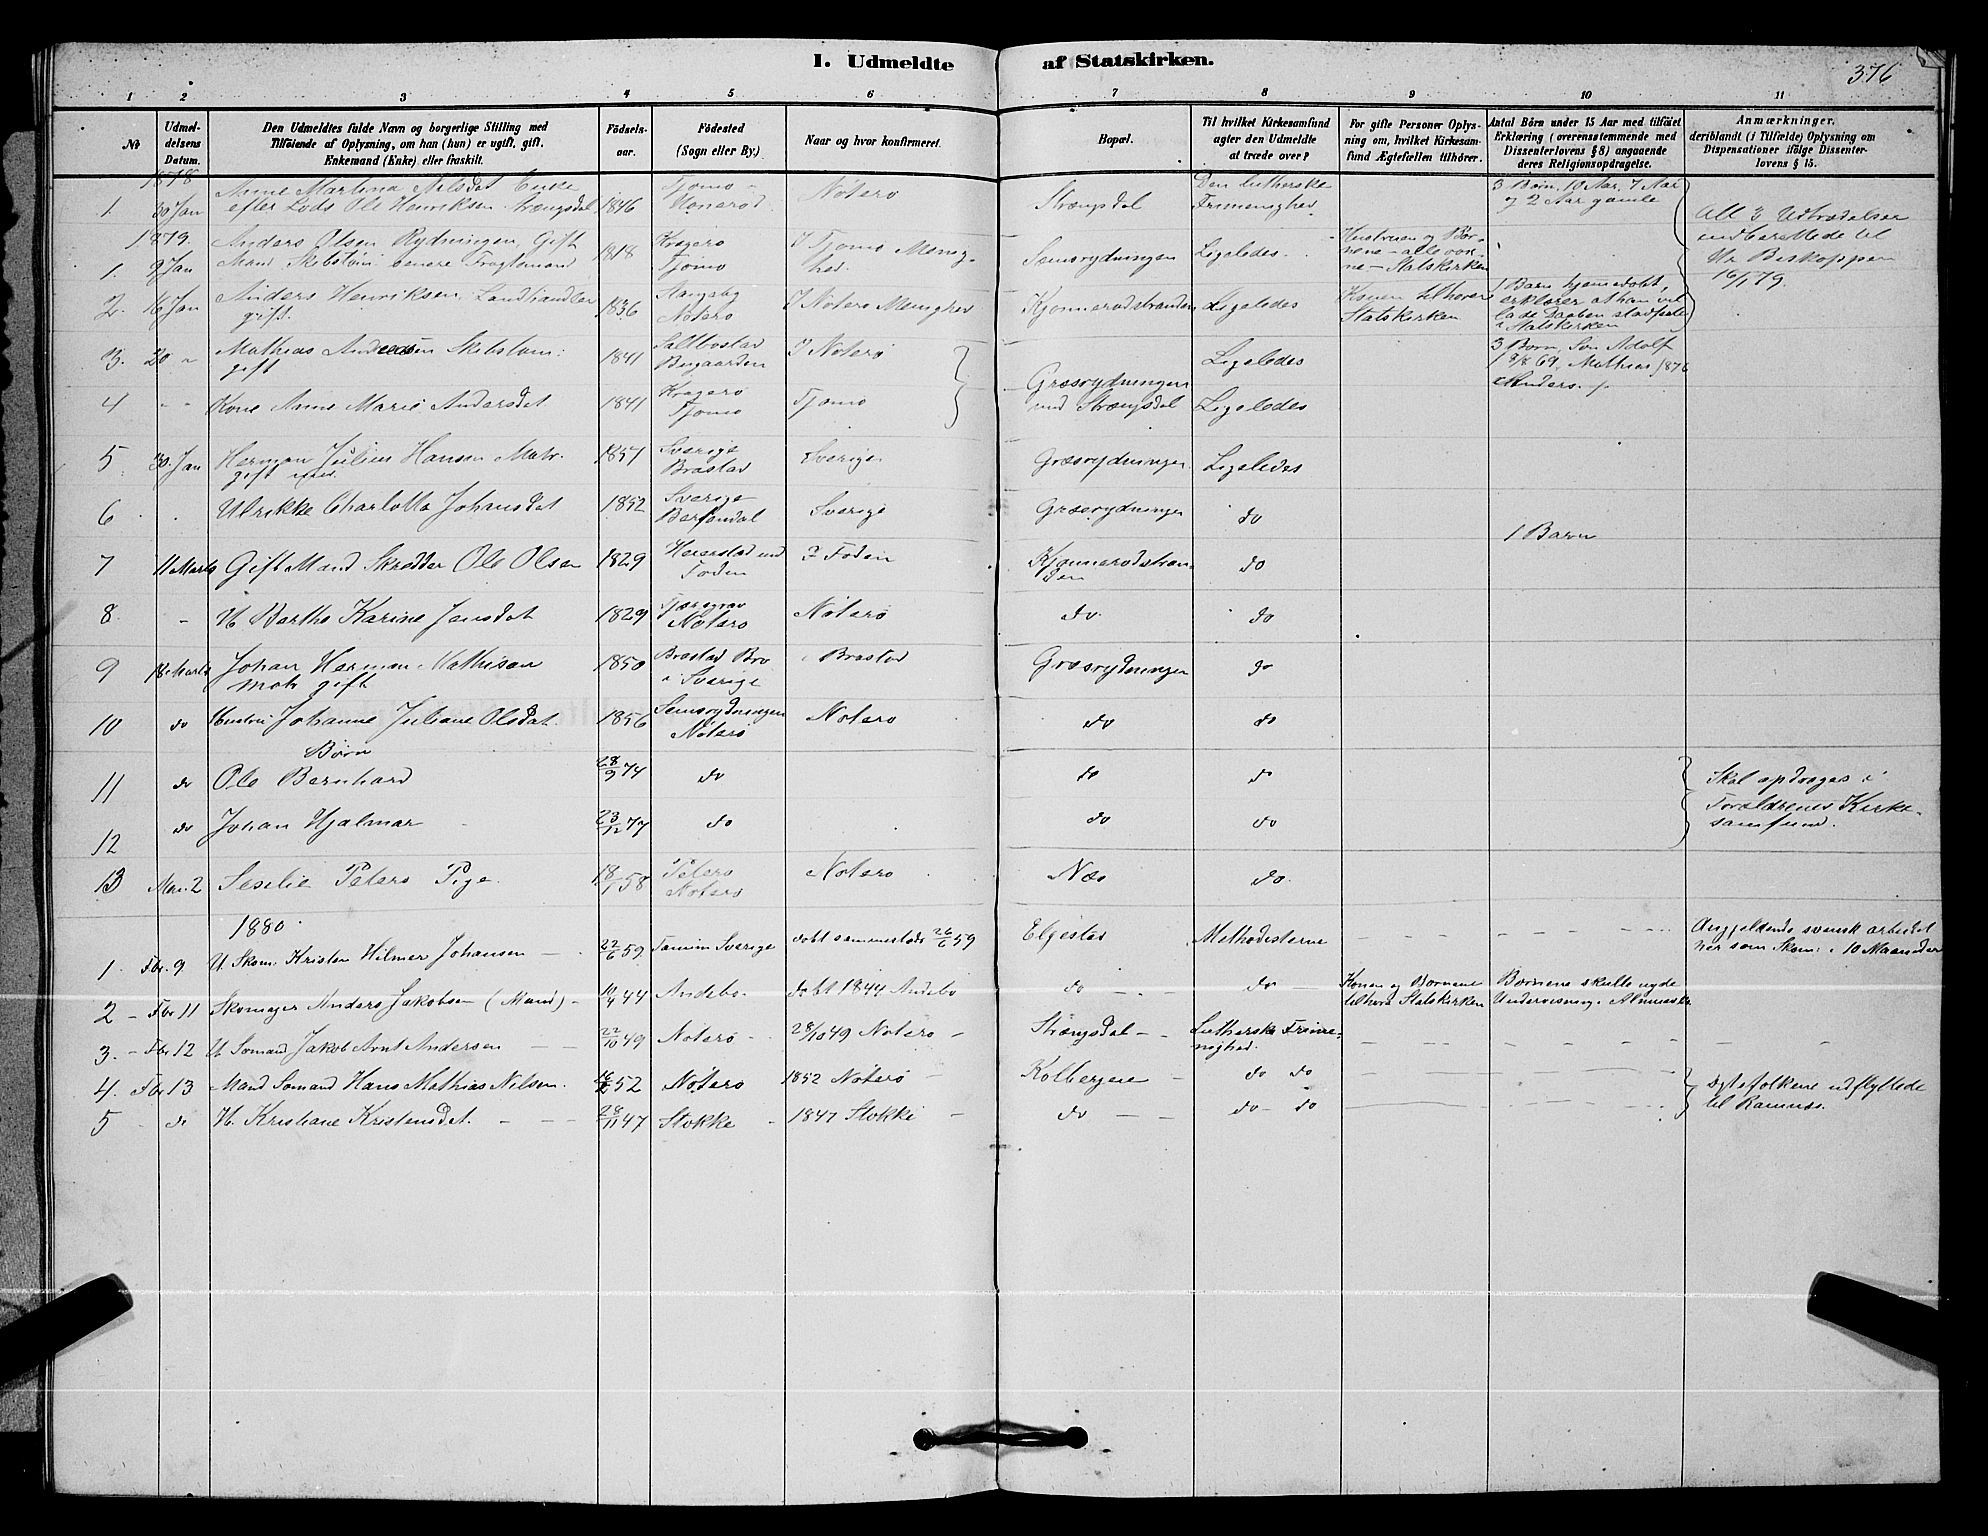 I. Udmeldte af Statskirken.
376
1 2 3 4 5 6 7 8 9 10 11
No
Udmeldelsens Datum.
Den Udmeldtes fulde Navn og borgerlige Stilling med
Tilføiende af Oplysning, om han (hun) er ugift, gift,
Enkemand (Enke) eller fraskilt.
Fødselsaar.
Fødested
(Sogn eller By.)
Naar og hvor konfirmeret.
Bopæl.
Til hvilket Kirkesamfund
agter den Udmeldte
at træde over?
For gifte Personer Oplys-
ning om, hvilket Kirkesam-
fund Ægtefællen tilhører.
Antal Børn under 15 Aar med tilføiet
Erklæring (overensstemmende med
Dissenterlovens § 8) angaaende
deres Religionsopdragelse.
Anmærkninger.
deriblandt (i Tilfælde) Oplysning om
Dispensationer ifølge Dissenter-
lovens § 15.
1878
1. 30 Jan Anne Martina Nilsdat Enke efter Lods Ole Henriksen Strængsdal 1846 Tjømø Nøterø Strængsdal Den lutherske Frimenighed 3 Børn, 10 Aar, 7 Aar og 2 Aar gamle
All 3 Udtrædelser
indberettede til
Hr Biskoppen
16/1 79.
1879.
1. 9 Jan Anders Olsen Rydningen, Gift Mand Skibstøm senere Fragtemand 1818 Kragerø Tjømø I Tjømø Menighed. Semsrydningen Ligeledes Hustruen og Børnene - alle voxne - Statskirken
2. 16 Jan Anders Henriksen Landhandler gift. 1836 Nøterø I Nøterø Menighed Kjønnerødstranden Ligeledes Konen tilhører Statskirken 1 Barn hjemmedøbt, erklærer at han vil lade Daaben stadfæste i Statskirken
3. 20 " Mathias Andersen Skibstøm: gift 1841 Saltbostad Bugaarden I Nøterø Græsrydningen Ligeledes 3 Børn, Søn Adolf 69, Mathias 1876 Anders.
4 " " Kone Anne Marie Andersdat 1841 Kragerø Tjømø Tjømø und Strængsdal Ligeledes
5 30 Jan Herman Julius Hansen Matr. gift med 1851 Sverige Brastad Sverige Græsrydningen Ligeledes
6 " Ulrikke Charlotta Johansdat 1852 Sverige Sverige Græsrydningen do 1 Barn
7 11 Marts Gift Mand Skrædder Ole Olsen 1829 Foden ? Foden Kjønnerødstranden do
8 " H. Berthe Karine Jensdat 1829 Nøterø Nøterø do do
9 18 Marts Johan Herman Mathisen Matr gift 1850 Brastad Bro i Sverige Brastad Græsrydningen do
10 do Hustru Johanne Juliane Olsdat 1856 Semsrydningen Nøterø Nøterø do do
Børn
11 do Ole Bernhard 28/9 74 do do do Skal opdrages i
12 do Johan Hjalmar 23/12 77 do do do Forældrenes Kirke-
samfund.
13 Mai 2 Seselie Peters Pige 18/1 58 Nøterø Nøterø Næs do
1880
1. Fbr. 9 U. Skom: Kristen Hilmer Johansen 22/6 59 Tanum Sverige døbt sammesteds 26/6 59 Elgestad Methodisterne Angjeldende svensk arbeidet her som Skom: i 10 Maaneder
2 Fbr 11 Skomager Anders Jakobsen (Mand) 10/4 44 Andebo døbt 1844 Andebo do do Konen og Børnene tilhøre Statskirken Børnene skulle nyde Undervisning i Almuesk.
3. Fbr 12 U. Sømand Jakob Arnt Andersen 22/10 49 Nøterø 28/10 49 Nøterø Strængsdal Lutherske Frimenighed.
4. Fbr 13 Mand Sømand Hans Mathias Nilsen. 52 Nøterø 1852 Nøterø Kolbergene do do Ægtefolkene udflyttede
5 do H. Kristiane Kristensdat. 28/11 47 Stokke 1847 Stokke do do do til Ramnæs.